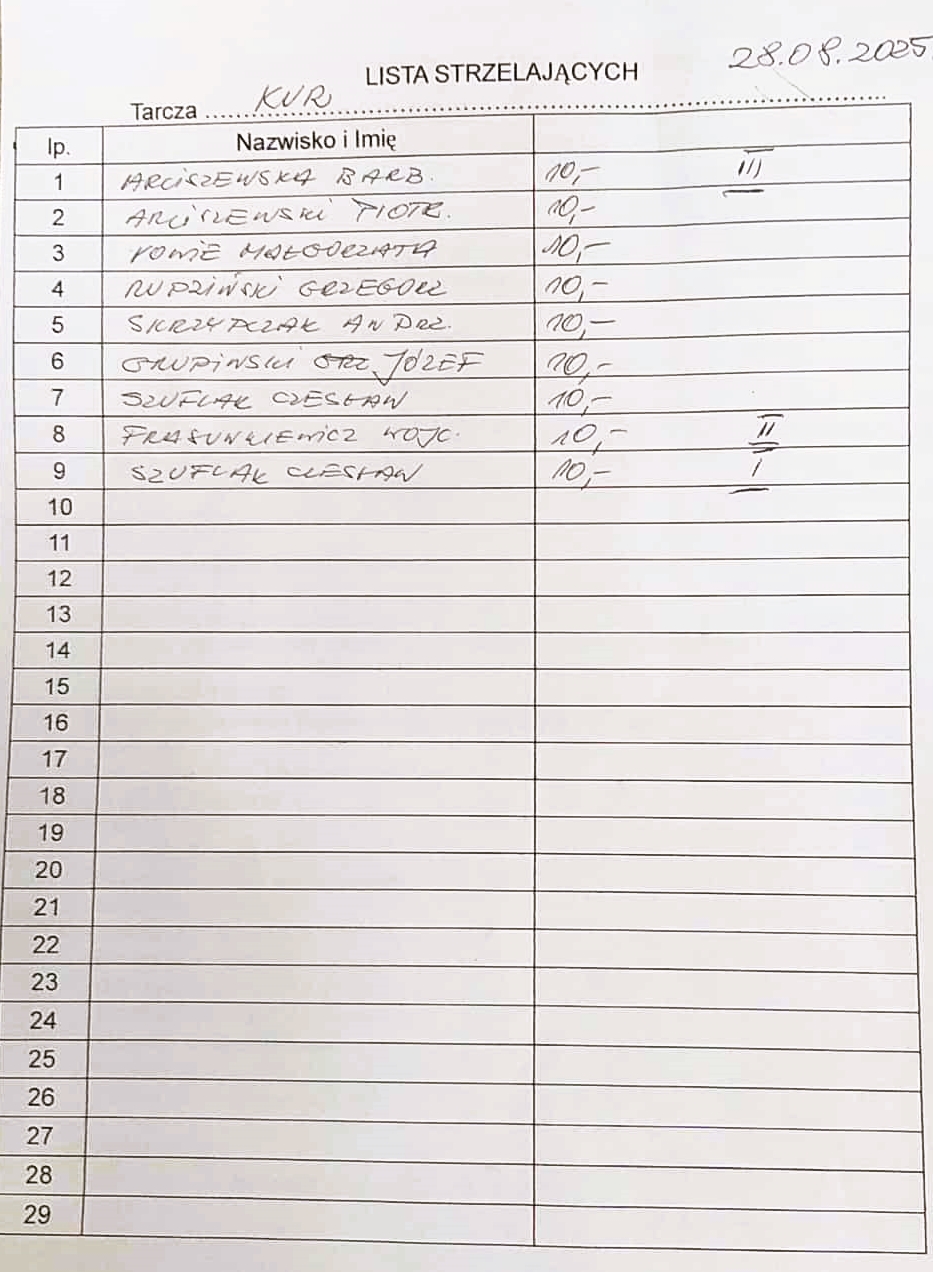 28.08.2025
LISTA STRZELAJĄCYCH
Tarcza KUR
lp. Nazwisko i Imię
1 ARCISZEWSKA BARB. 10,- III
2 ARCISZEWSKI PIOTR. 10,-
3 MAŁGORZATA 10,-
4 RUDZIŃSKI GRZEGORZ 10,-
5 SKRZYPCZAK ANDRZ. 10,-
6 GRUPIŃSKI GRZ JÓZEF 10,-
7 SZUFLAK CZESŁAW 10,-
8 FRASUNKIEWICZ WOJC. 10,- II
9 SZUFLAK CZESŁAW 10,- I
10
11
12
13
14
15
16
17
18
19
20
21
22
23
24
25
26
27
28
29